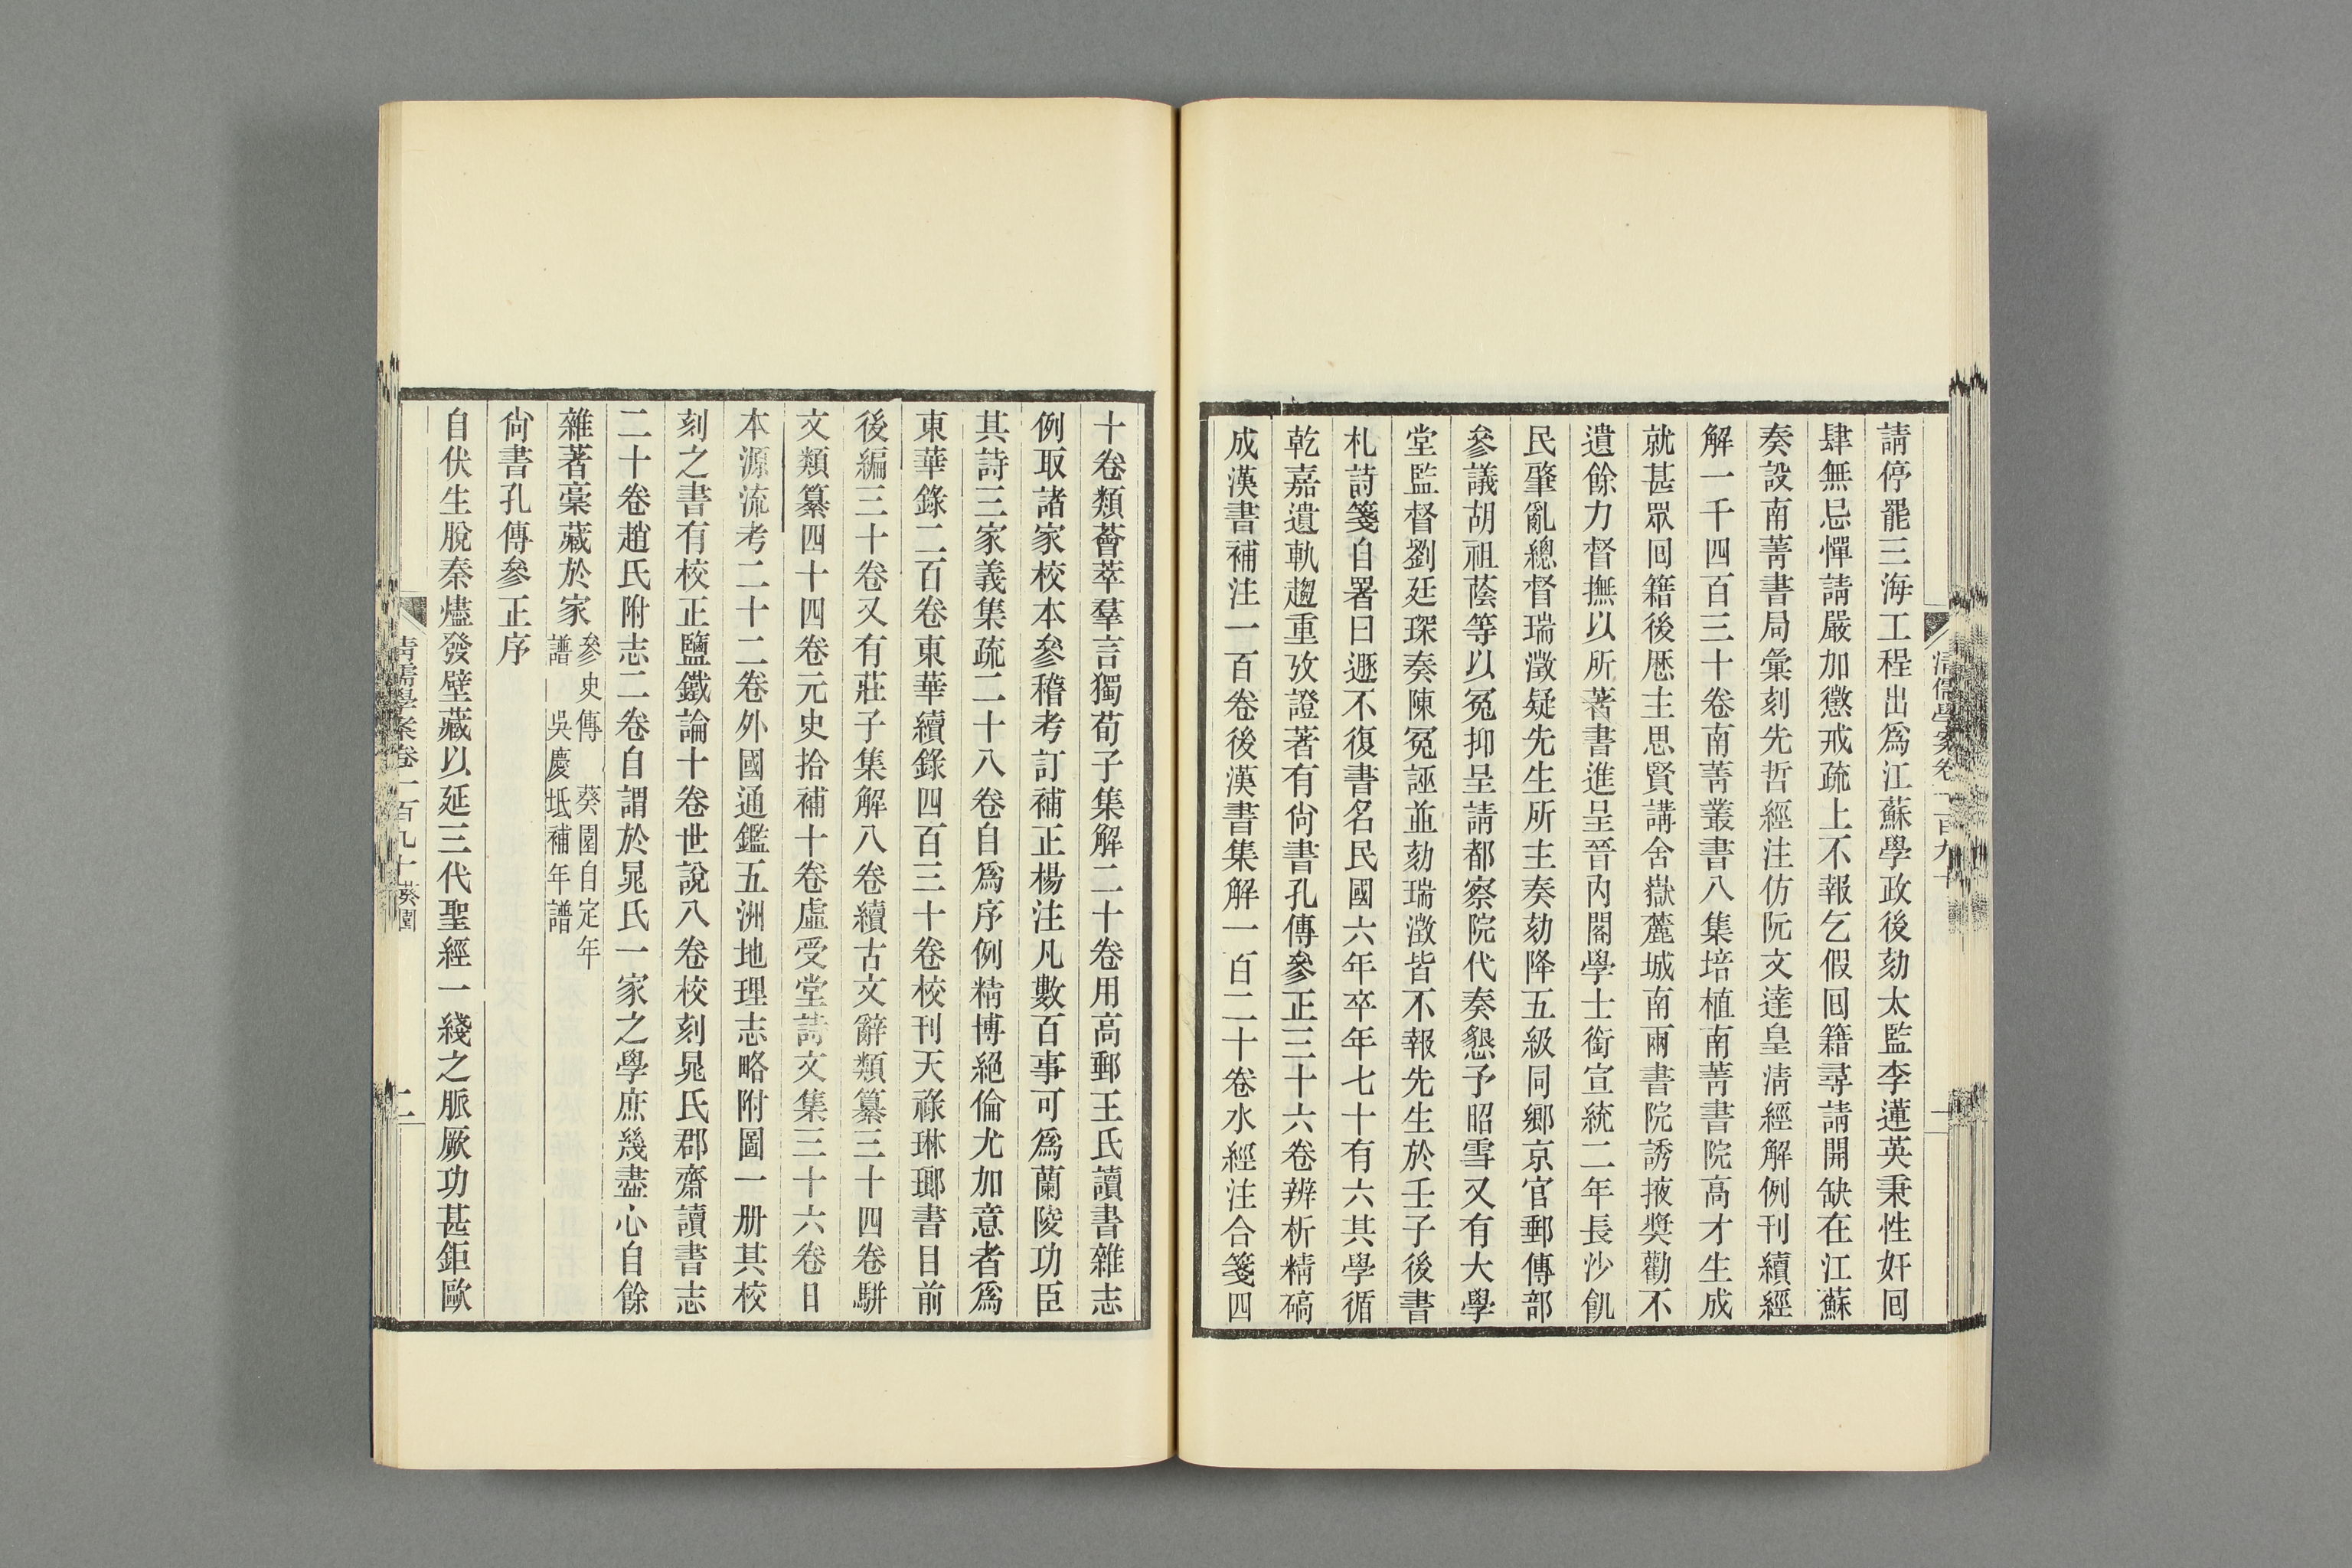 請停罷三海工程出爲江蘇學政後劾太監李蓮英秉性奸回
肆無忌憚請嚴加懲戒疏上不報乞假回籍尋請開缺在江蘇
奏設南菁書局彙刻先哲經注仿阮文達皇淸經解例刊續經
解一千四百三十卷南菁叢書八集培植南菁書院高才生成
就甚眾回籍後歷主思賢講舍嶽麓城南兩書院誘掖奬勸不
遺餘力督撫以所著書進呈晉內閣學士銜宣統二年長沙飢
民肇亂總督瑞澂疑先生所主奏劾降五級同鄉京官郵傳部
參議胡祖蔭等以冤抑呈請都察院代奏懇予昭雪又有大學
堂監督劉廷琛奏陳冤誣並劾瑞澂皆不報先生於壬子後書
札詩箋自署曰遯不復書名民國六年卒年七十有六其學循
乾嘉遺軌趨重攷證著有尙書孔傳參正三十六卷辨析精碻
成漢書補注一百卷後漢書集解一百二十卷水經注合箋四
淸儒學案卷一百九十
十卷類薈萃羣言獨荀子集解二十卷用高郵王氏讀書雜志
例取諸家校本參稽考訂補正楊注凡數百事可爲蘭陵功臣
其詩三家義集疏二十八卷自爲序例精博絕倫尤加意者爲
東華錄二百卷東華續錄四百三十卷校刊天祿琳瑯書目前
後編三十卷又有莊子集解八卷續古文辭類纂三十四卷駢
文類纂四十四卷元史拾補十卷虛受堂詩文集三十六卷日
本源流考二十二卷外國通鑑五洲地理志略附圖一册其校
刻之書有校正鹽鐵論十卷世說八卷校刻晁氏郡齋讀書志
二十卷趙氏附志二卷自謂於晁氏一家之學庶幾盡心自餘
雜著稾藏於家 參史傳 葵園自定年
譜 吳慶坻補年譜
尙書孔傳參正序
自伏生脫秦燼發壁藏以延三代聖經一綫之脈厥功甚鉅歐
淸儒學案卷一百九十 葵園
二